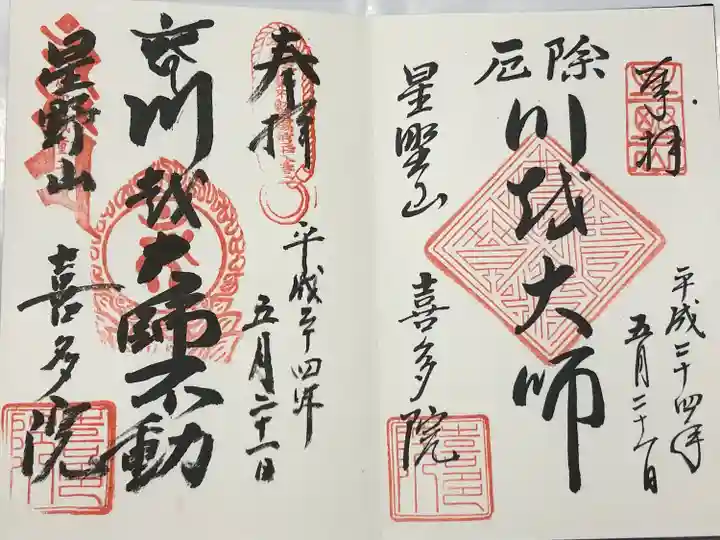 奉拝
平成二十四年
五月二十一日
厄除
川越大師
星野山
喜多院
奉拝
平成二十四年
五月二十一日
川越大師不動
星野山
喜多院